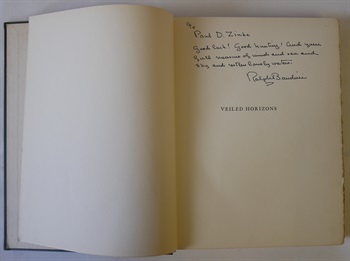 To
Paul D. Zinke
Good luck! Good hunting! And your
full measure of wind and sea and
sky and restless lonely waters.
Ralph Bandini
VEILED HORIZONS